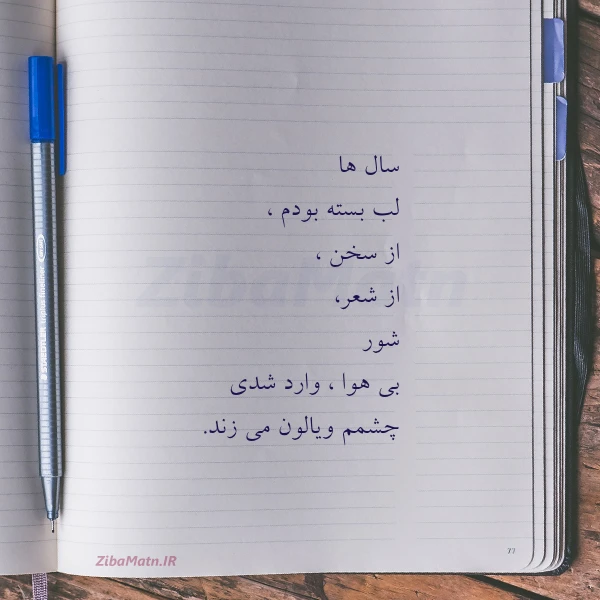 سال ها
لب بسته بودم ،
از سخن ،
از شعر،
شور
بی هوا ، وارد شدی
چشمم ویالون می زند.
ZibaMatn
77
ZibaMatn.IR